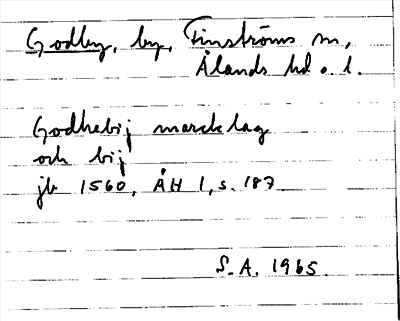 Godby, by, Finströms sn,
Ålands hd o. l.
Godhebij marcklag
och bij
jb 1560, ÅH 1, s. 187
S.A. 1965.